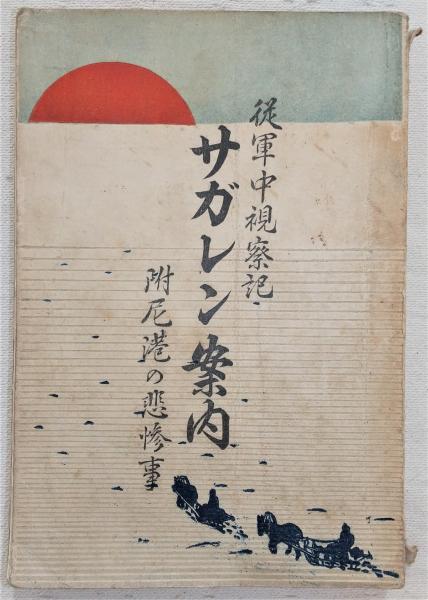 従軍中視察記
サガレン案内
附尼港の悲惨事